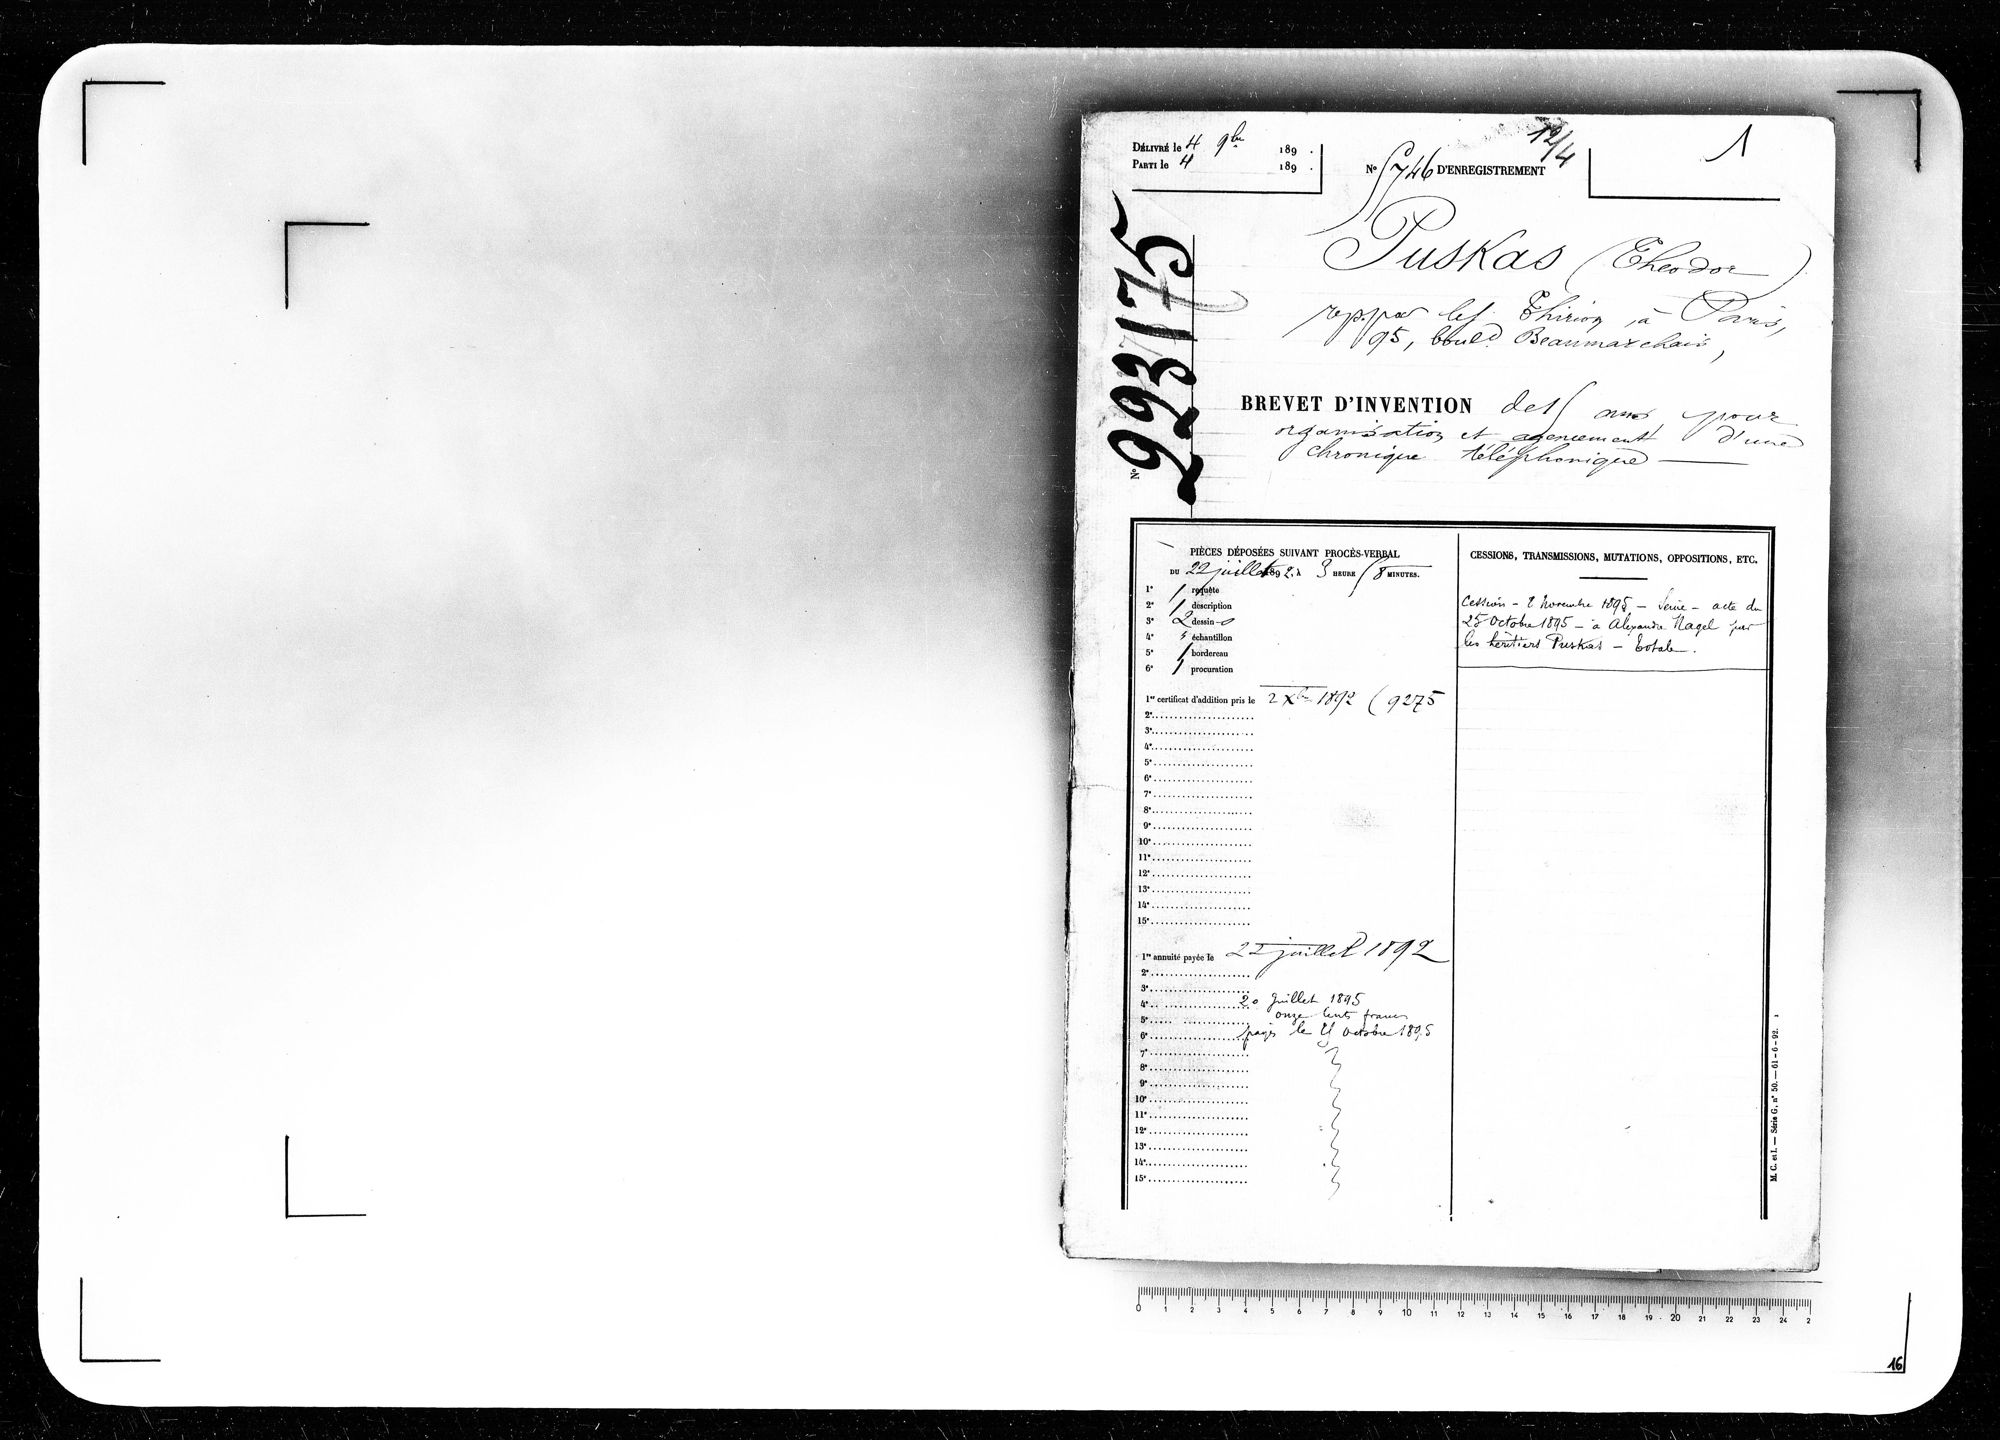 DÉLIVRÉ le 4 9bre 189 .
PARTI le 4 189 .
No 5746 D'ENREGISTREMENT
12/4
1
No 223175
Puskas (Theodor)
rep. par les Thirion, à Paris,
95, bould. Beaumarchais,
BREVET D'INVENTION de 15 ans pour
organisation et agencement d'une
chronique téléphonique
PIÈCES DÉPOSÉES SUIVANT PROCÈS-VERBAL
DU 22 juillet 1892 à 3 HEURE 18 MINUTES.
1° 1 requête
2° 1 description
3° 2 dessins
4° " échantillon
5° 1 bordereau
6° 1 procuration
1er certificat d'addition pris le 2 Xbre 1892 (9275
2e
3e
4e
5e
6e
7e
8e
9e
10e
11e
12e
13e
14e
15e
1re annuité payée le 22 juillet 1892
2e
3e
4e 20 Juillet 1895
5e onze cents francs
6e payés le 21 octobre 1895
7e
8e
9e
10e
11e
12e
13e
14e
15e
CESSIONS, TRANSMISSIONS, MUTATIONS, OPPOSITIONS, ETC.
Cession - 8 Novembre 1895 - Seine - acte du
25 Octobre 1895 - à Alexandre Nagel par
les héritiers Puskas - totale.
M. C. et I. — Série G. n° 50. — 61-6-92. 1
0 1 2 3 4 5 6 7 8 9 10 11 12 13 14 15 16 17 18 19 20 21 22 23 24 2
16